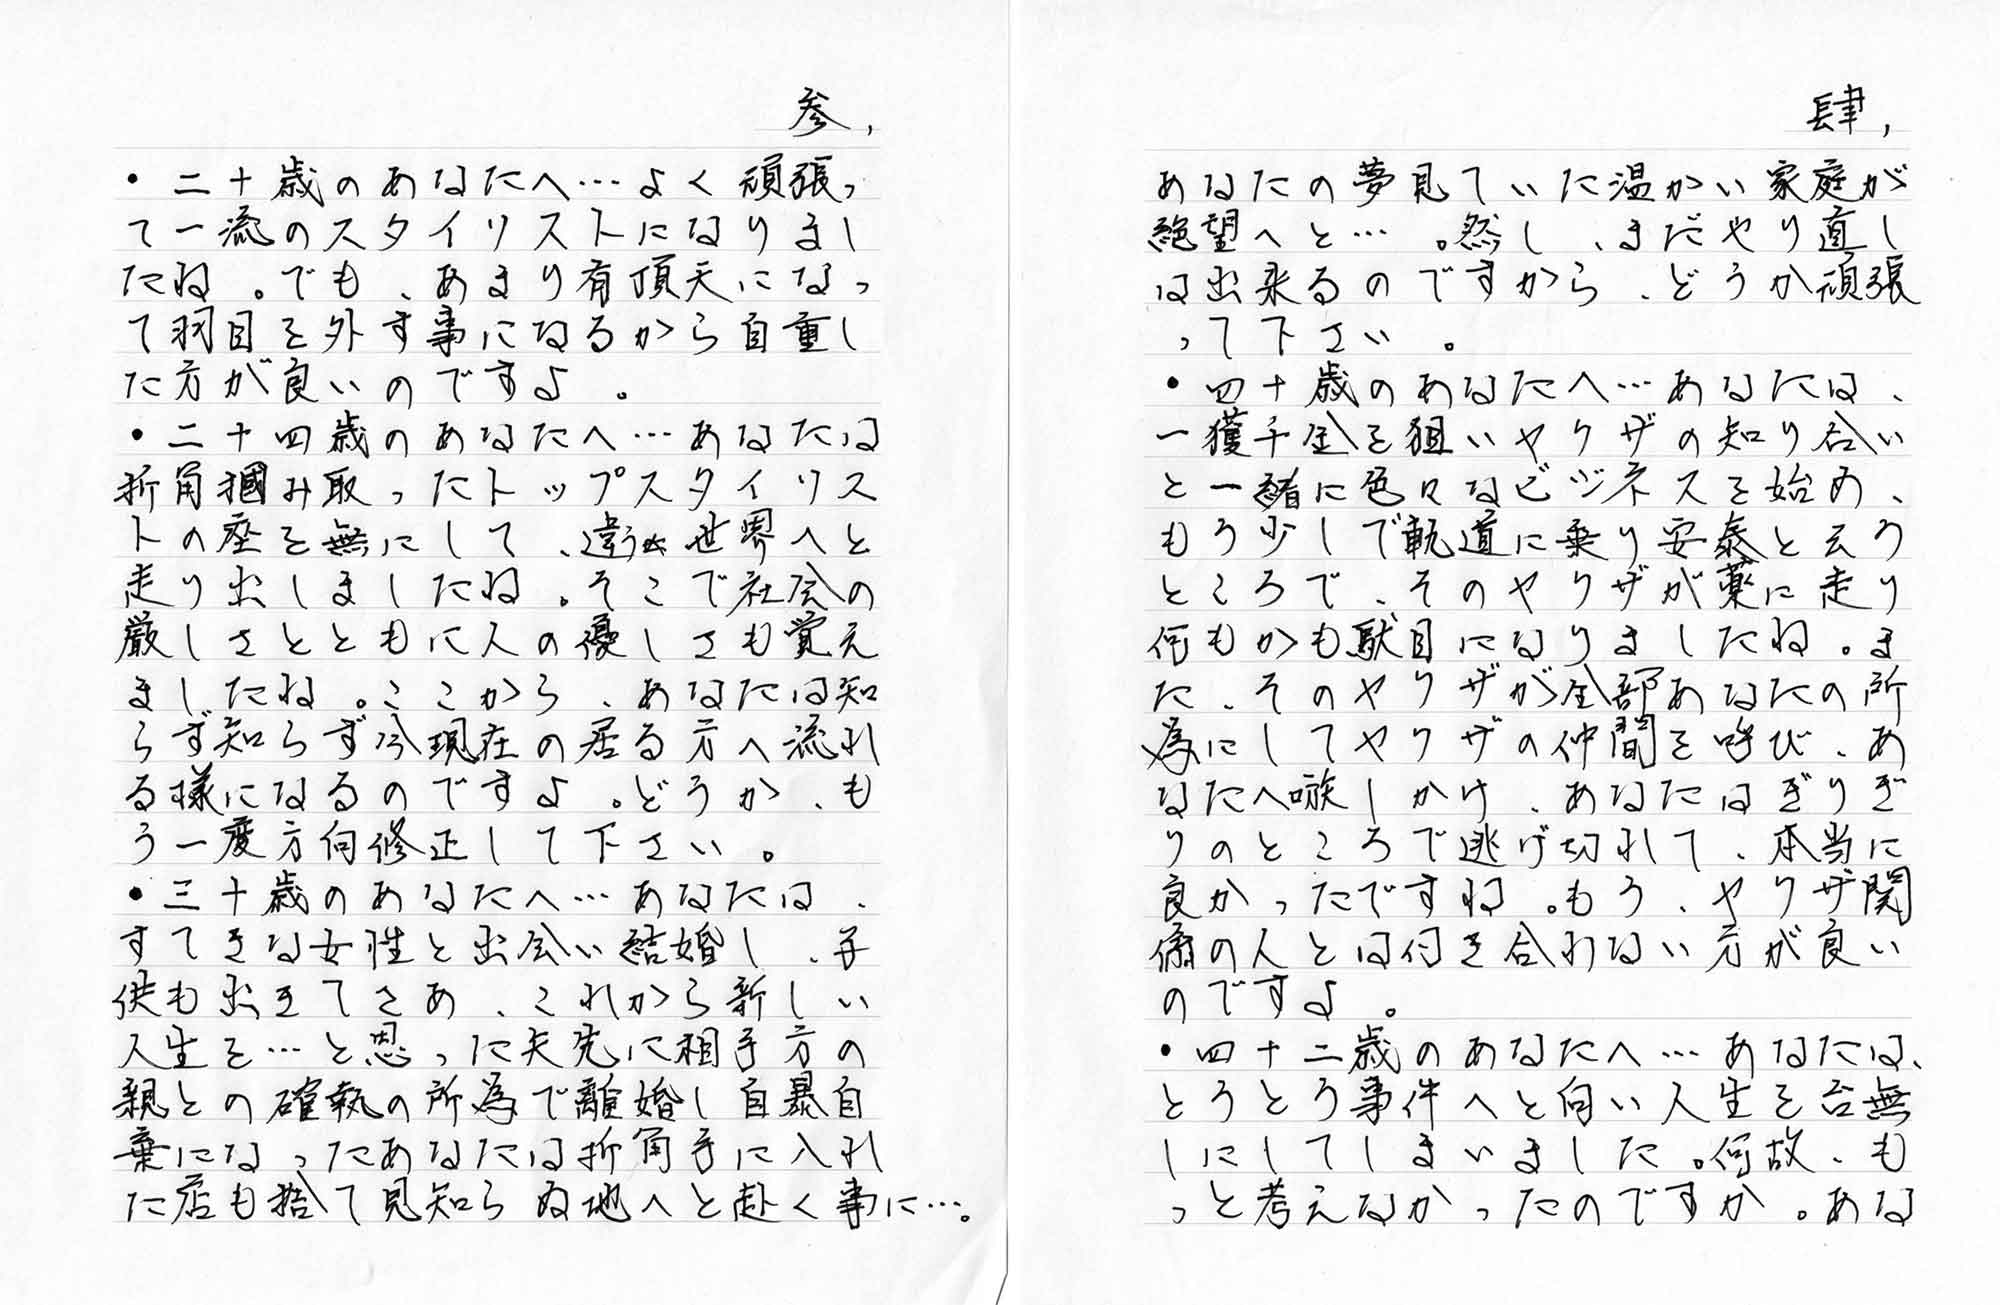 参,
・二十歳のあなたへ…よく頑張っ
て一流のスタイリストになりまし
たね。でも、あまり有頂天になっ
て羽目を外す事になるから自重し
た方が良いのですよ。
・二十四歳のあなたへ…あなたは
折角掴み取ったトップスタイリス
トの座を無にして、違う世界へと
走り出しましたね。そこで社会の
厳しさとともに人の優しさも覚え
ましたね。ここから、あなたは知
らず知らず今現在の居る方へ流れ
る様になるのですよ。どうか、も
う一度方向修正して下さい。
・三十歳のあなたへ…あなたは、
すてきな女性と出会い結婚し、子
供も出きてさあ、これから新しい
人生を…と思った矢先に相手方の
親との確執の所為で離婚し自暴自
棄になったあなたは折角手に入れ
た店も捨て見知らぬ地へと赴く事に…。
肆,
あなたの夢見ていた温かい家庭が
絶望へと…。然し、まだやり直し
は出来るのですから、どうか頑張
って下さい。
・四十歳のあなたへ…あなたは、
一獲千金を狙いヤクザの知り合い
と一緒に色々なビジネスを始め、
もう少しで軌道に乗り安泰と云う
ところで、そのヤクザが薬に走り
何もかも駄目になりましたね。ま
た、そのヤクザが全部あなたの所
為にしてヤクザの仲間を呼び、あ
なたへ嗾しかけ、あなたはぎりぎ
りのところで逃げ切れて、本当に
良かったですね。もう、ヤクザ関
係の人とは付き合わない方が良い
のですよ。
・四十二歳のあなたへ…あなたは、
とうとう事件へと向い人生を台無
しにしてしまいました。何故、も
っと考えなかったのですか。あな